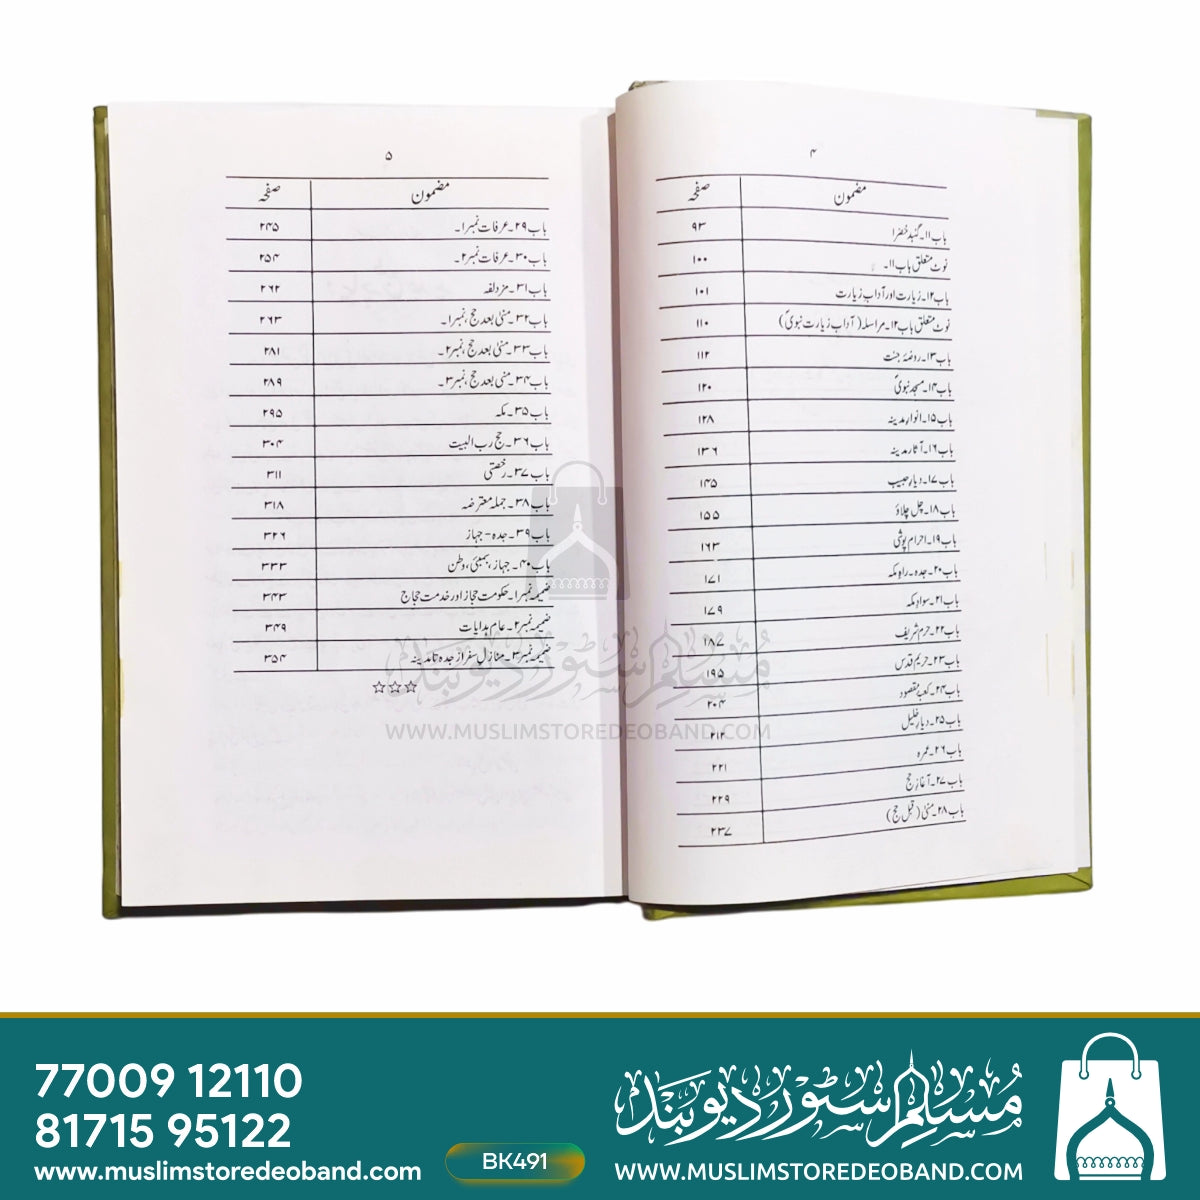 ۴
مضمون صفحہ
باب۱۱۔ گنبد خضرا ۹۳
نوٹ متعلق باب۱۱۔ ۱۰۰
باب۱۲۔ زیارت اور آداب زیارت ۱۰۱
نوٹ متعلق باب۱۲۔ مراسلہ (آداب زیارت نبویؐ) ۱۱۰
باب۱۳۔ روضۂ جنت ۱۱۲
باب۱۴۔ مسجد نبویؐ ۱۲۰
باب۱۵۔ انوار مدینہ ۱۲۸
باب۱۶۔ آثار مدینہ ۱۳۶
باب۱۷۔ دیار حبیب ۱۴۵
باب۱۸۔ چل چلاؤ ۱۵۵
باب۱۹۔ احرام پوشی ۱۶۳
باب۲۰۔ جدہ۔ راہ مکہ ۱۷۱
باب۲۱۔ سواد مکہ ۱۷۹
باب۲۲۔ حرم شریف ۱۸۷
باب۲۳۔ حریم قدس ۱۹۵
باب۲۴۔ کعبۂ مقصود ۲۰۴
باب۲۵۔ دیار خلیل ۲۱۲
باب۲۶۔ عمرہ ۲۲۱
باب۲۷۔ آغاز حج ۲۲۹
باب۲۸۔ منیٰ (قبل حج) ۲۳۷
۵
مضمون صفحہ
باب۲۹۔ عرفات نمبر۱۔ ۲۴۵
باب۳۰۔ عرفات نمبر۲۔ ۲۵۴
باب۳۱۔ مزدلفہ ۲۶۲
باب۳۲۔ منیٰ بعد حج، نمبر۱۔ ۲۶۳
باب۳۳۔ منیٰ بعد حج، نمبر۲۔ ۲۸۱
باب۳۴۔ منیٰ بعد حج، نمبر۳۔ ۲۸۹
باب۳۵۔ مکہ ۲۹۵
باب۳۶۔ حج رب البیت ۳۰۴
باب۳۷۔ رخصتی ۳۱۱
باب۳۸۔ جملہ معترضہ ۳۱۸
باب۳۹۔ جدہ - جہاز ۳۲۶
باب۴۰۔ جہاز، بمبئی، وطن ۳۳۳
ضمیمہ نمبر۱۔ حکومت حجاز اور خدمت حجاج ۳۴۳
ضمیمہ نمبر۲۔ عام ہدایات ۳۴۹
ضمیمہ نمبر۳۔ منازل سفر از جدہ تا مدینہ ۳۵۴
☆☆☆
مسلم سٹور دیوبند
WWW.MUSLIMSTOREDEOBAND.COM
77009 12110
81715 95122
www.muslimstoredeoband.com
BK491
مسلم سٹور دیوبند
WWW.MUSLIMSTOREDEOBAND.COM